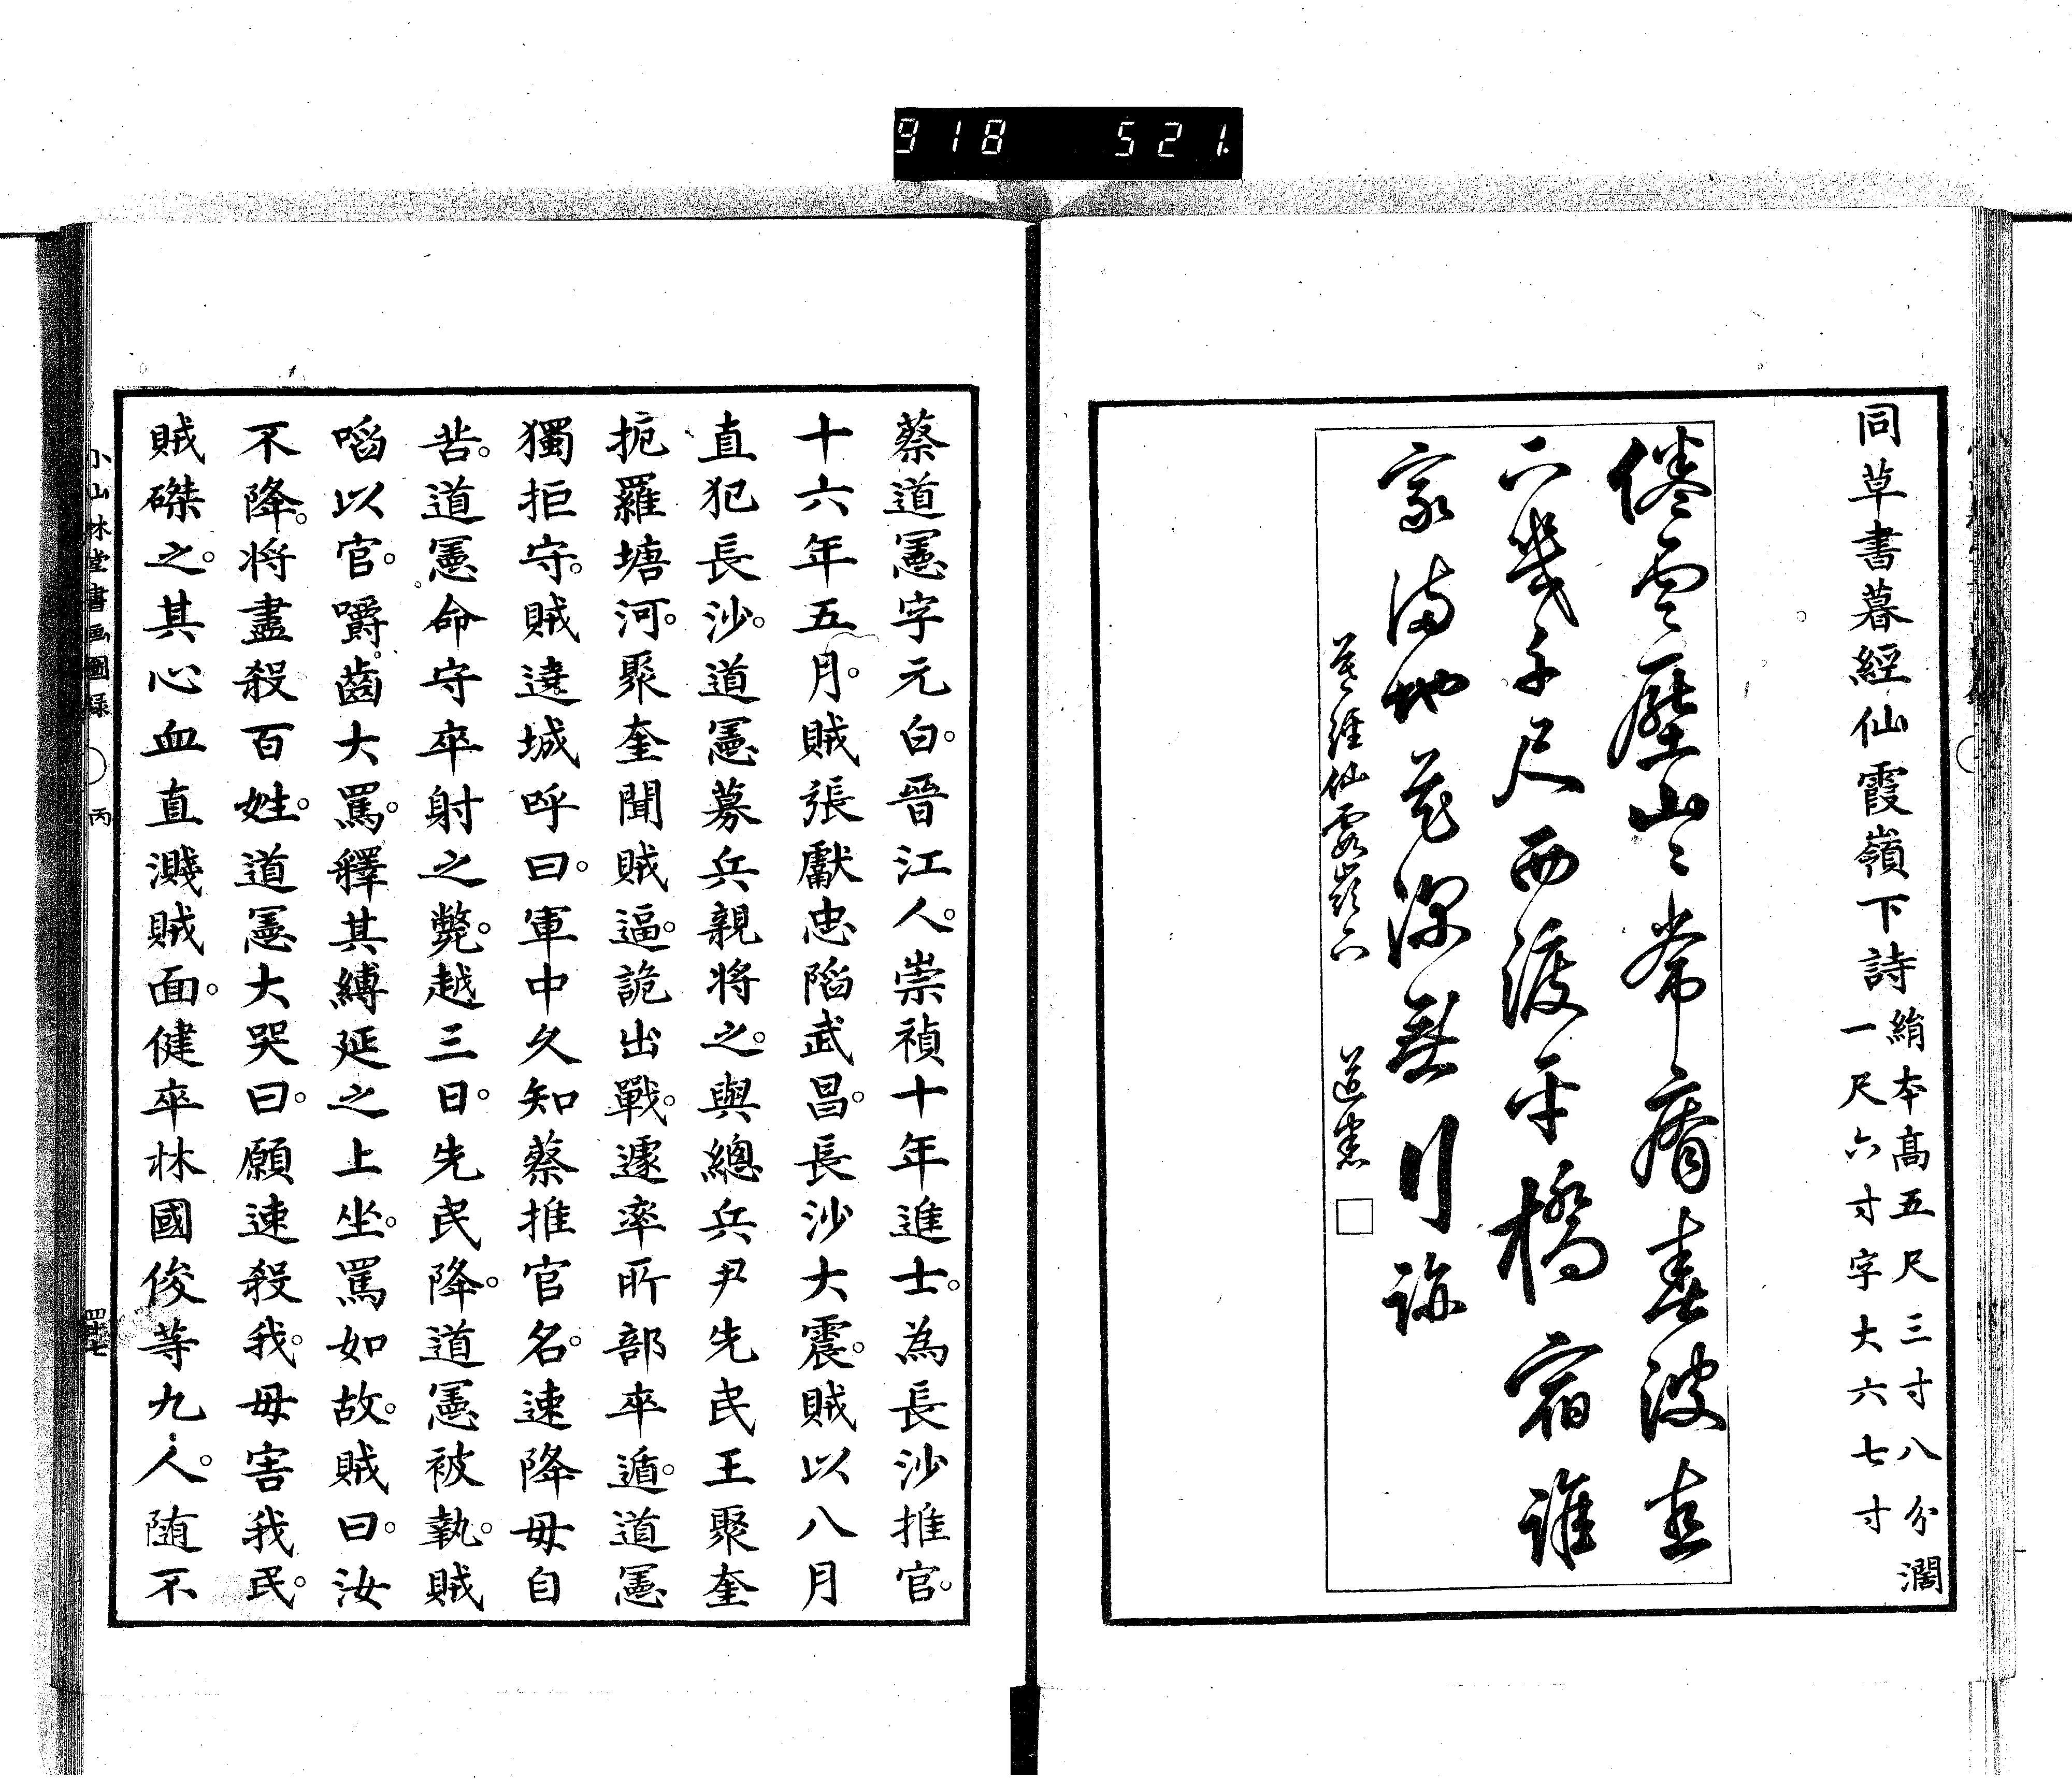 918 521
同草書暮經仙霞嶺下詩
絹本高五尺三寸八分濶
一尺六寸字大六七寸
倦雲壓山山常瘠春波直
下幾千尺西渡平橋宿誰
家滿地花深無行跡
暮經仙霞嶺下 道憲
蔡道憲字元白。晉江人。崇禎十年進士。為長沙推官。
十六年五月。賊張獻忠陷武昌。長沙大震。賊以八月
直犯長沙。道憲募兵親將之。與總兵尹先民王聚奎
扼羅塘河。聚奎聞賊逼。詭出戰。遽率所部卒遁。道憲
獨拒守。賊遶城呼曰。軍中久知蔡推官名。速降毋自
苦。道憲命守卒射之斃。越三日。先民降。道憲被執。賊
啗以官。嚼齒大罵。釋其縛延之上坐。罵如故。賊曰。汝
不降。将盡殺百姓。道憲大哭曰。願速殺我。毋害我民。
賊磔之。其心血直濺賊面。健卒林國俊等九人。随不
小山林堂書画圖録 丙 四十七